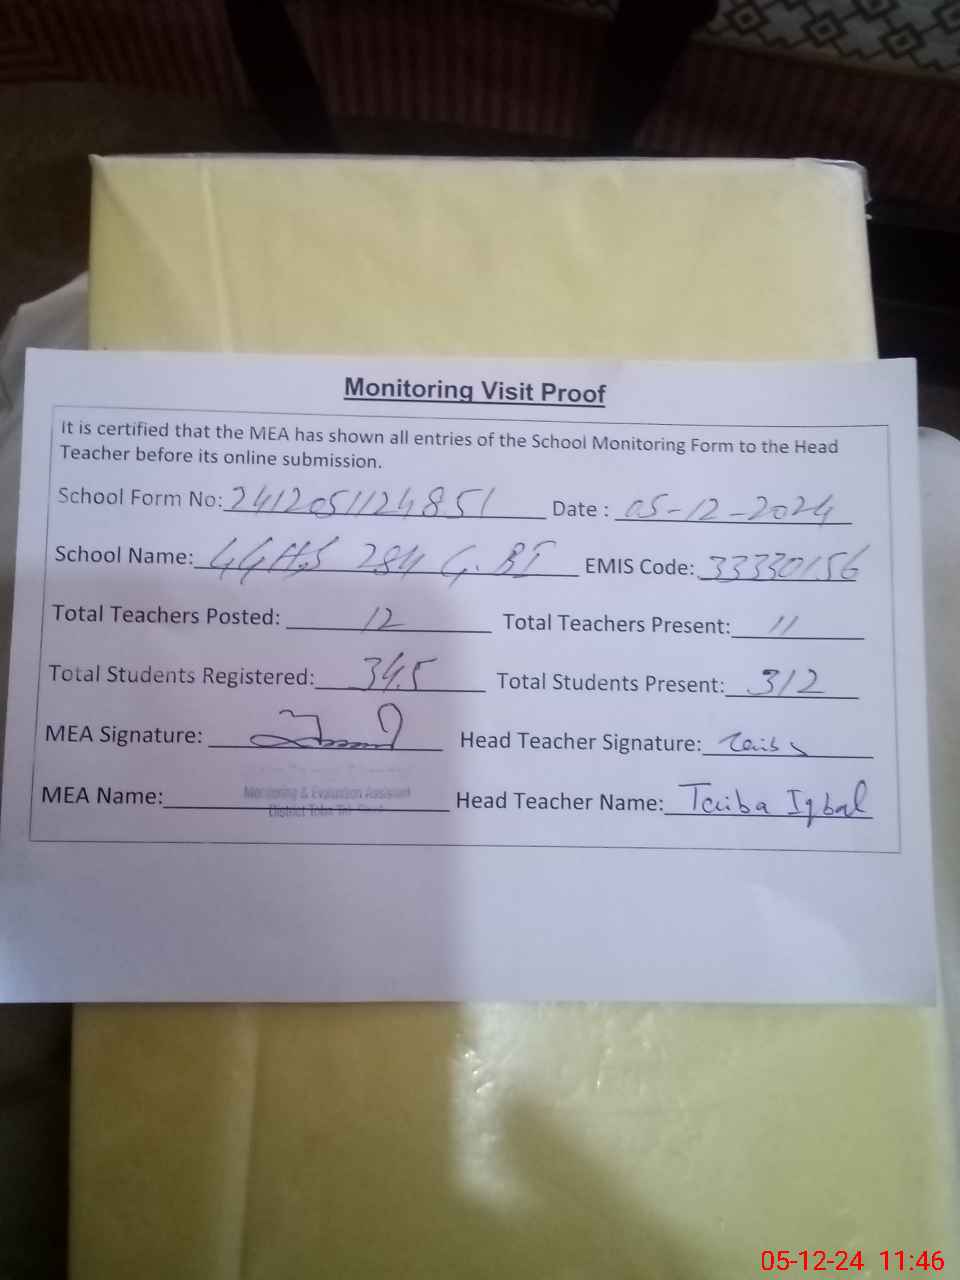 Monitoring Visit Proof
It is certified that the MEA has shown all entries of the School Monitoring Form to the Head
Teacher before its online submission.
School Form No: 2412051124851 Date : 05-12-2024
School Name: GGHS 284 G.B I EMIS Code: 33330156
Total Teachers Posted: 12 Total Teachers Present: 11
Total Students Registered: 345 Total Students Present: 312
MEA Signature: Head Teacher Signature: Taiba
MEA Name: Monitoring & Evaluation Assistant Head Teacher Name: Taiba Iqbal
District Toba Tek
05-12-24 11:46